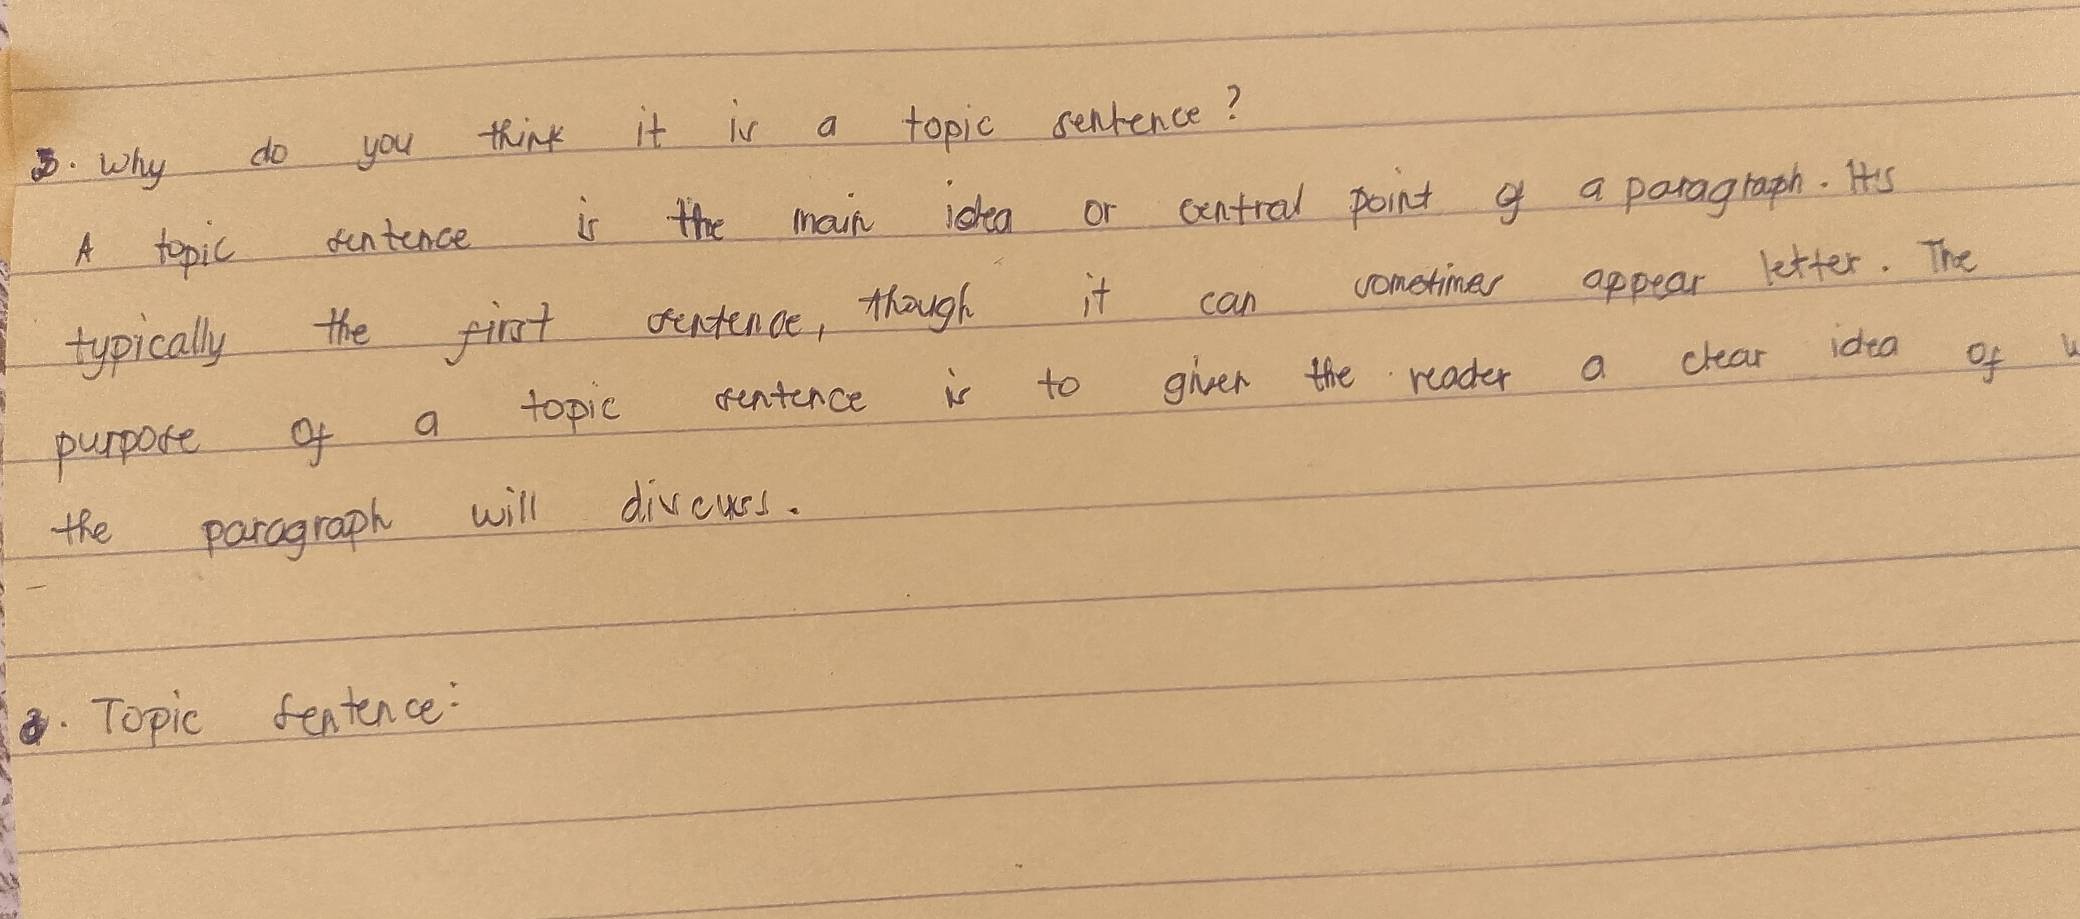 3. Why do you think it is a topic sentence?
A topic sentence is the main idea or central point of a paragraph. It's
typically the first sentence, though it can sometimes appear letter. The
purpose of a topic sentence is to given the reader a clear idea of
the paragraph will discuss.
Topic sentence: